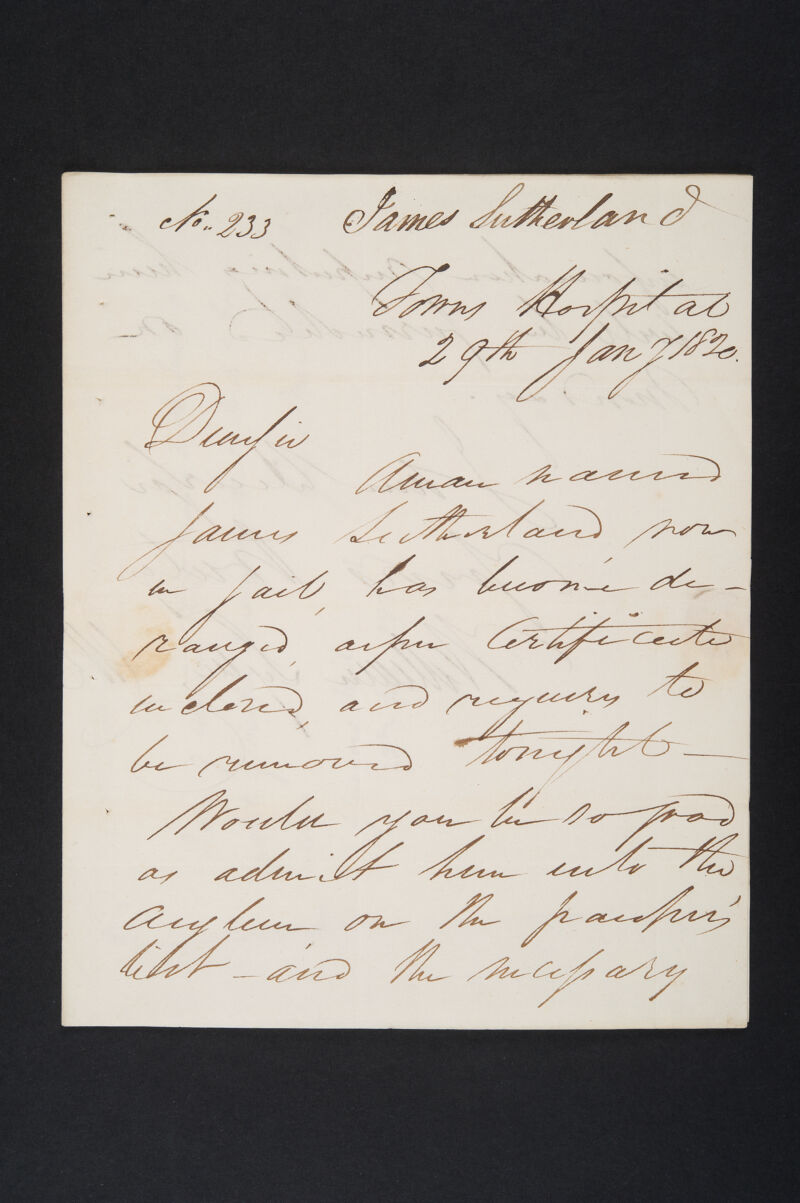 No. 233 James Sutherland
Towns Hospital
29th Jany 1820.
Dear Sir
A man named
James Sutherland, now
in Jail, has become de-
ranged, as per Certificate
inclosed, and requires to
be removed tonight —
Would you be so good
as admit him into the
Asylum on the pauper's
list – and the necessary